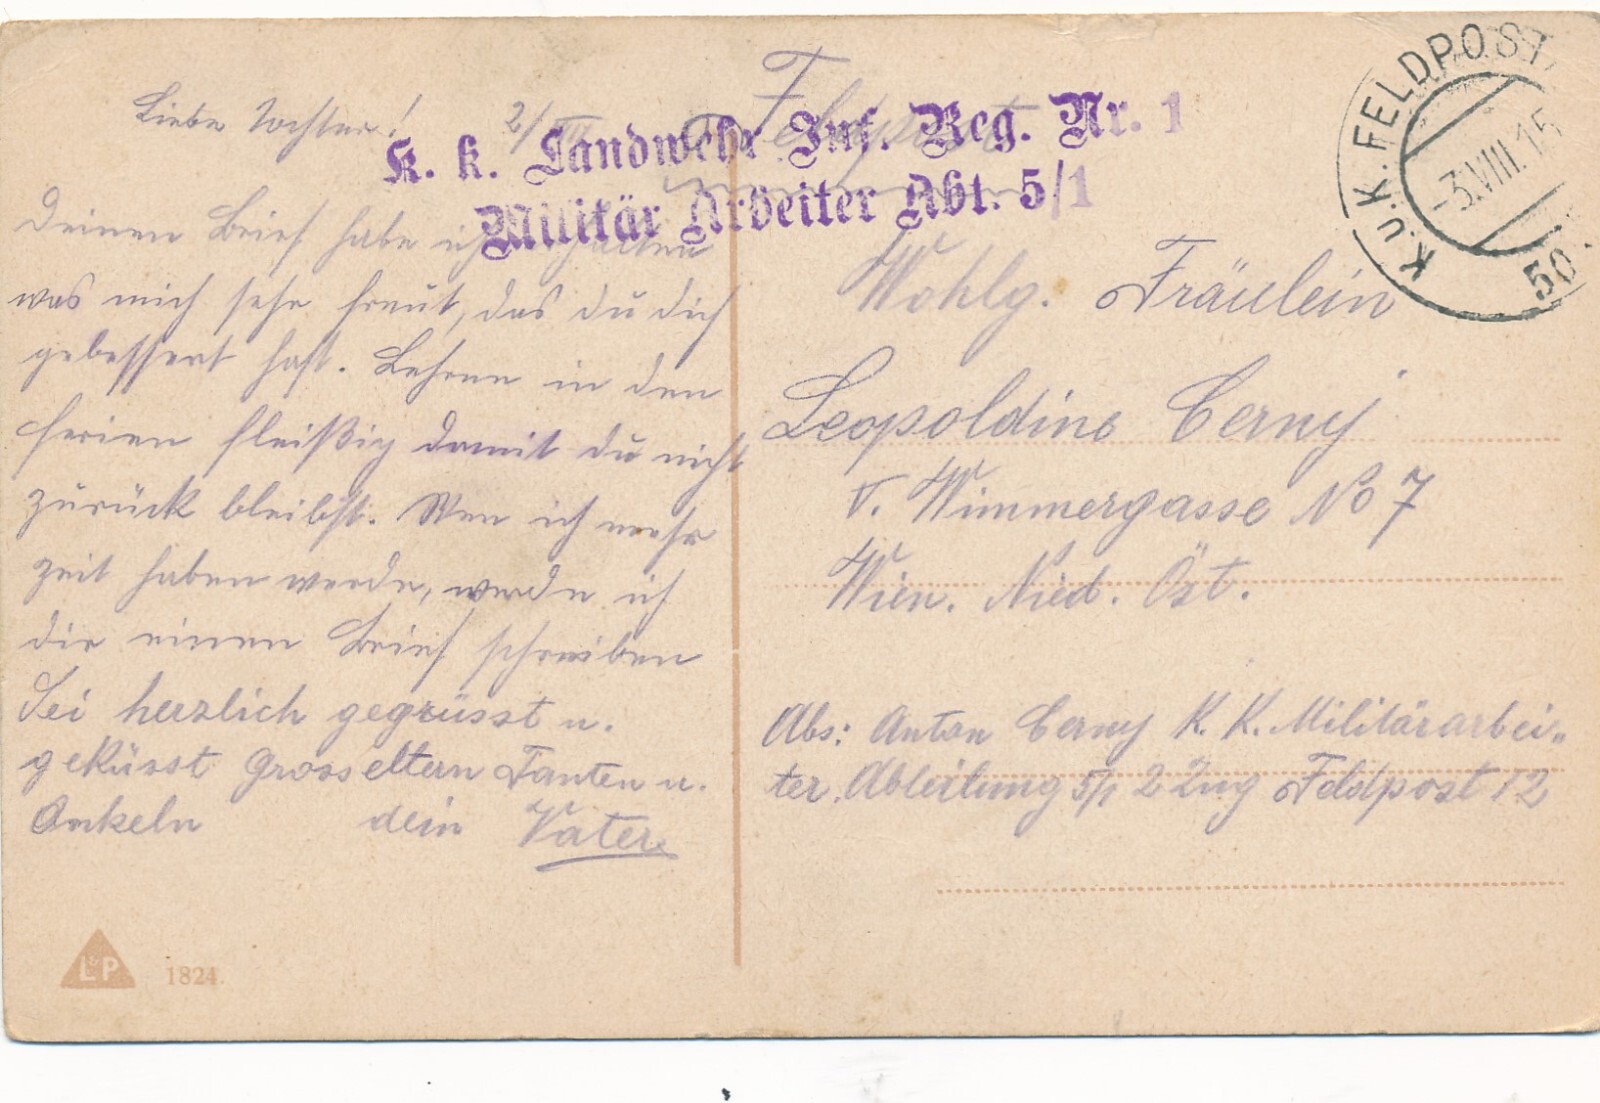 Liebe Tochter! 2/VIII
Deinen Brief habe ich erhalten
was mich sehr freut, das du dich
gebessert hast. Lehrne in den
ferien fleißig damit du nicht
zurück bleibst. Wen ich mehr
zeit haben werde, werde ich
dir einen Brief schreiben
Sei herzlich gegrüsst u.
geküsst Grosseltern Tanten u.
Onkeln dein Vater
L&P 1824.
Feldpost
K. k. Landwehr Inf. Reg. Nr. 1
Militär Arbeiter Abt. 5/1
K.U.K. FELDPOST
-3.VIII.15
50
Wohlg. Fräulein
Leopoldine Cerny
V. Wimmergasse No 7
Wien. Nied. Öst.
Abs: Anton Cerny K. K. Militärarbei„
ter. Abteilung 5/1 2 Zug Feldpost 12